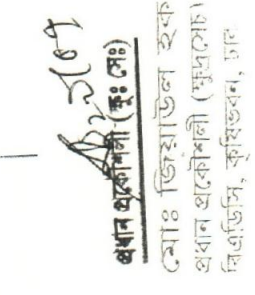 প্রধান প্রকৌশলী (ক্ষুঃ সেঃ)
মোঃ জিয়াউল হক
প্রধান প্রকৌশলী (ক্ষুদ্রসেচ)
বিএডিসি, কৃষিভবন, ঢাকা